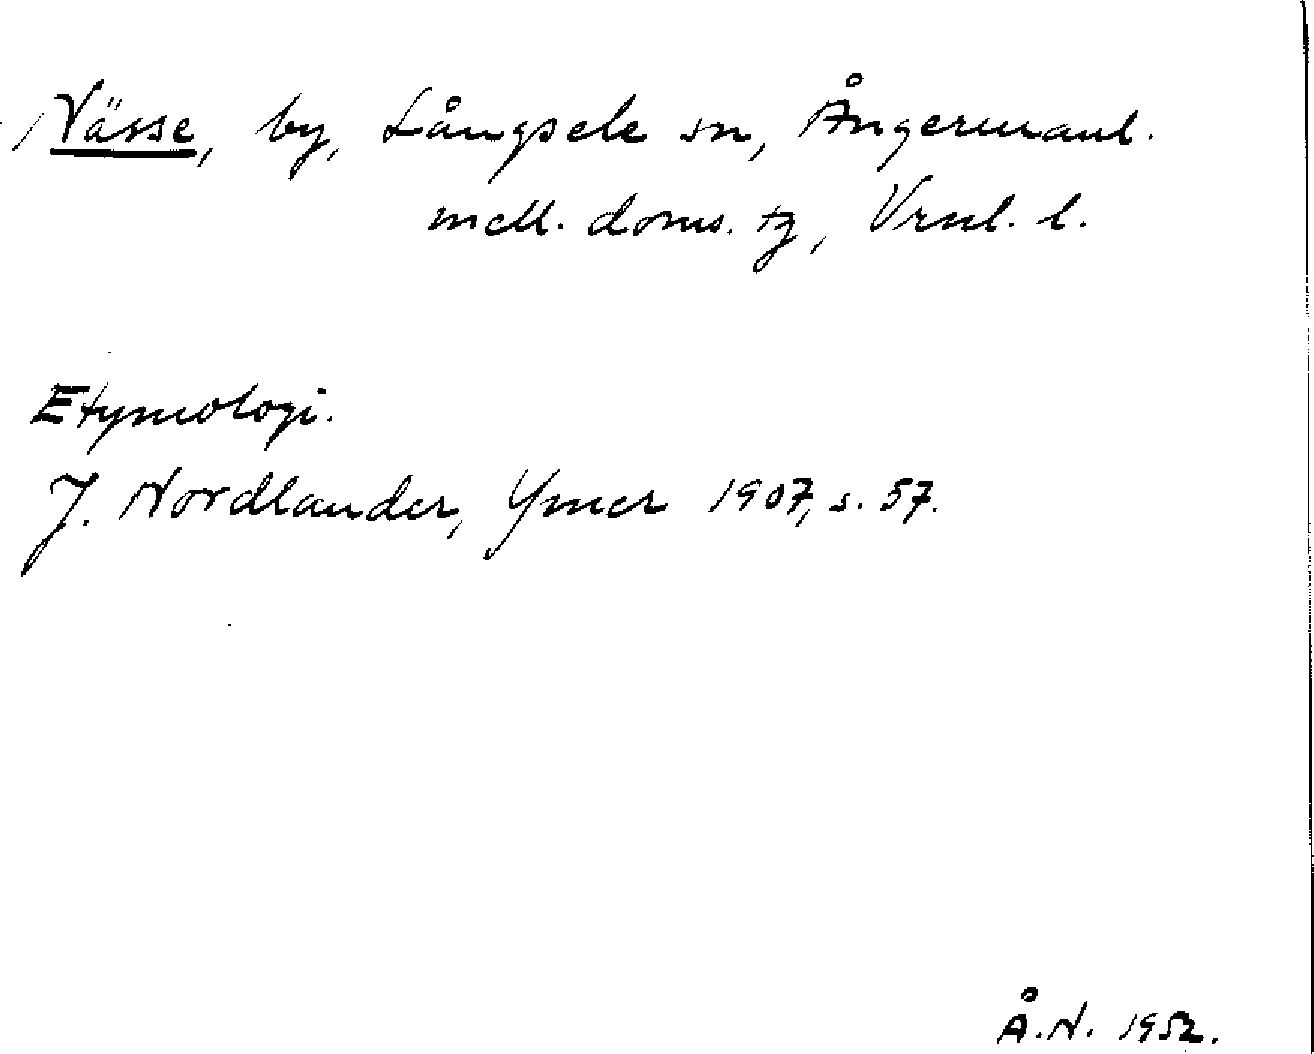 Nässe, by, Långsele sn, Ångermanl.
mell. doms. tg, Vrnl. l.
Etymologi.
J. Nordlander, Ymer 1907, s. 57.
Å.N. 1952.